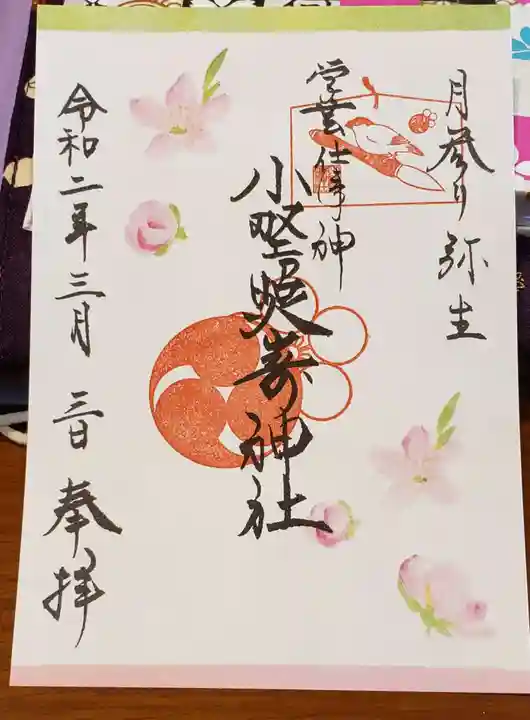 月参り 弥生
学芸仕事神
小野照嵜神社
令和二年三月 三日 奉拝